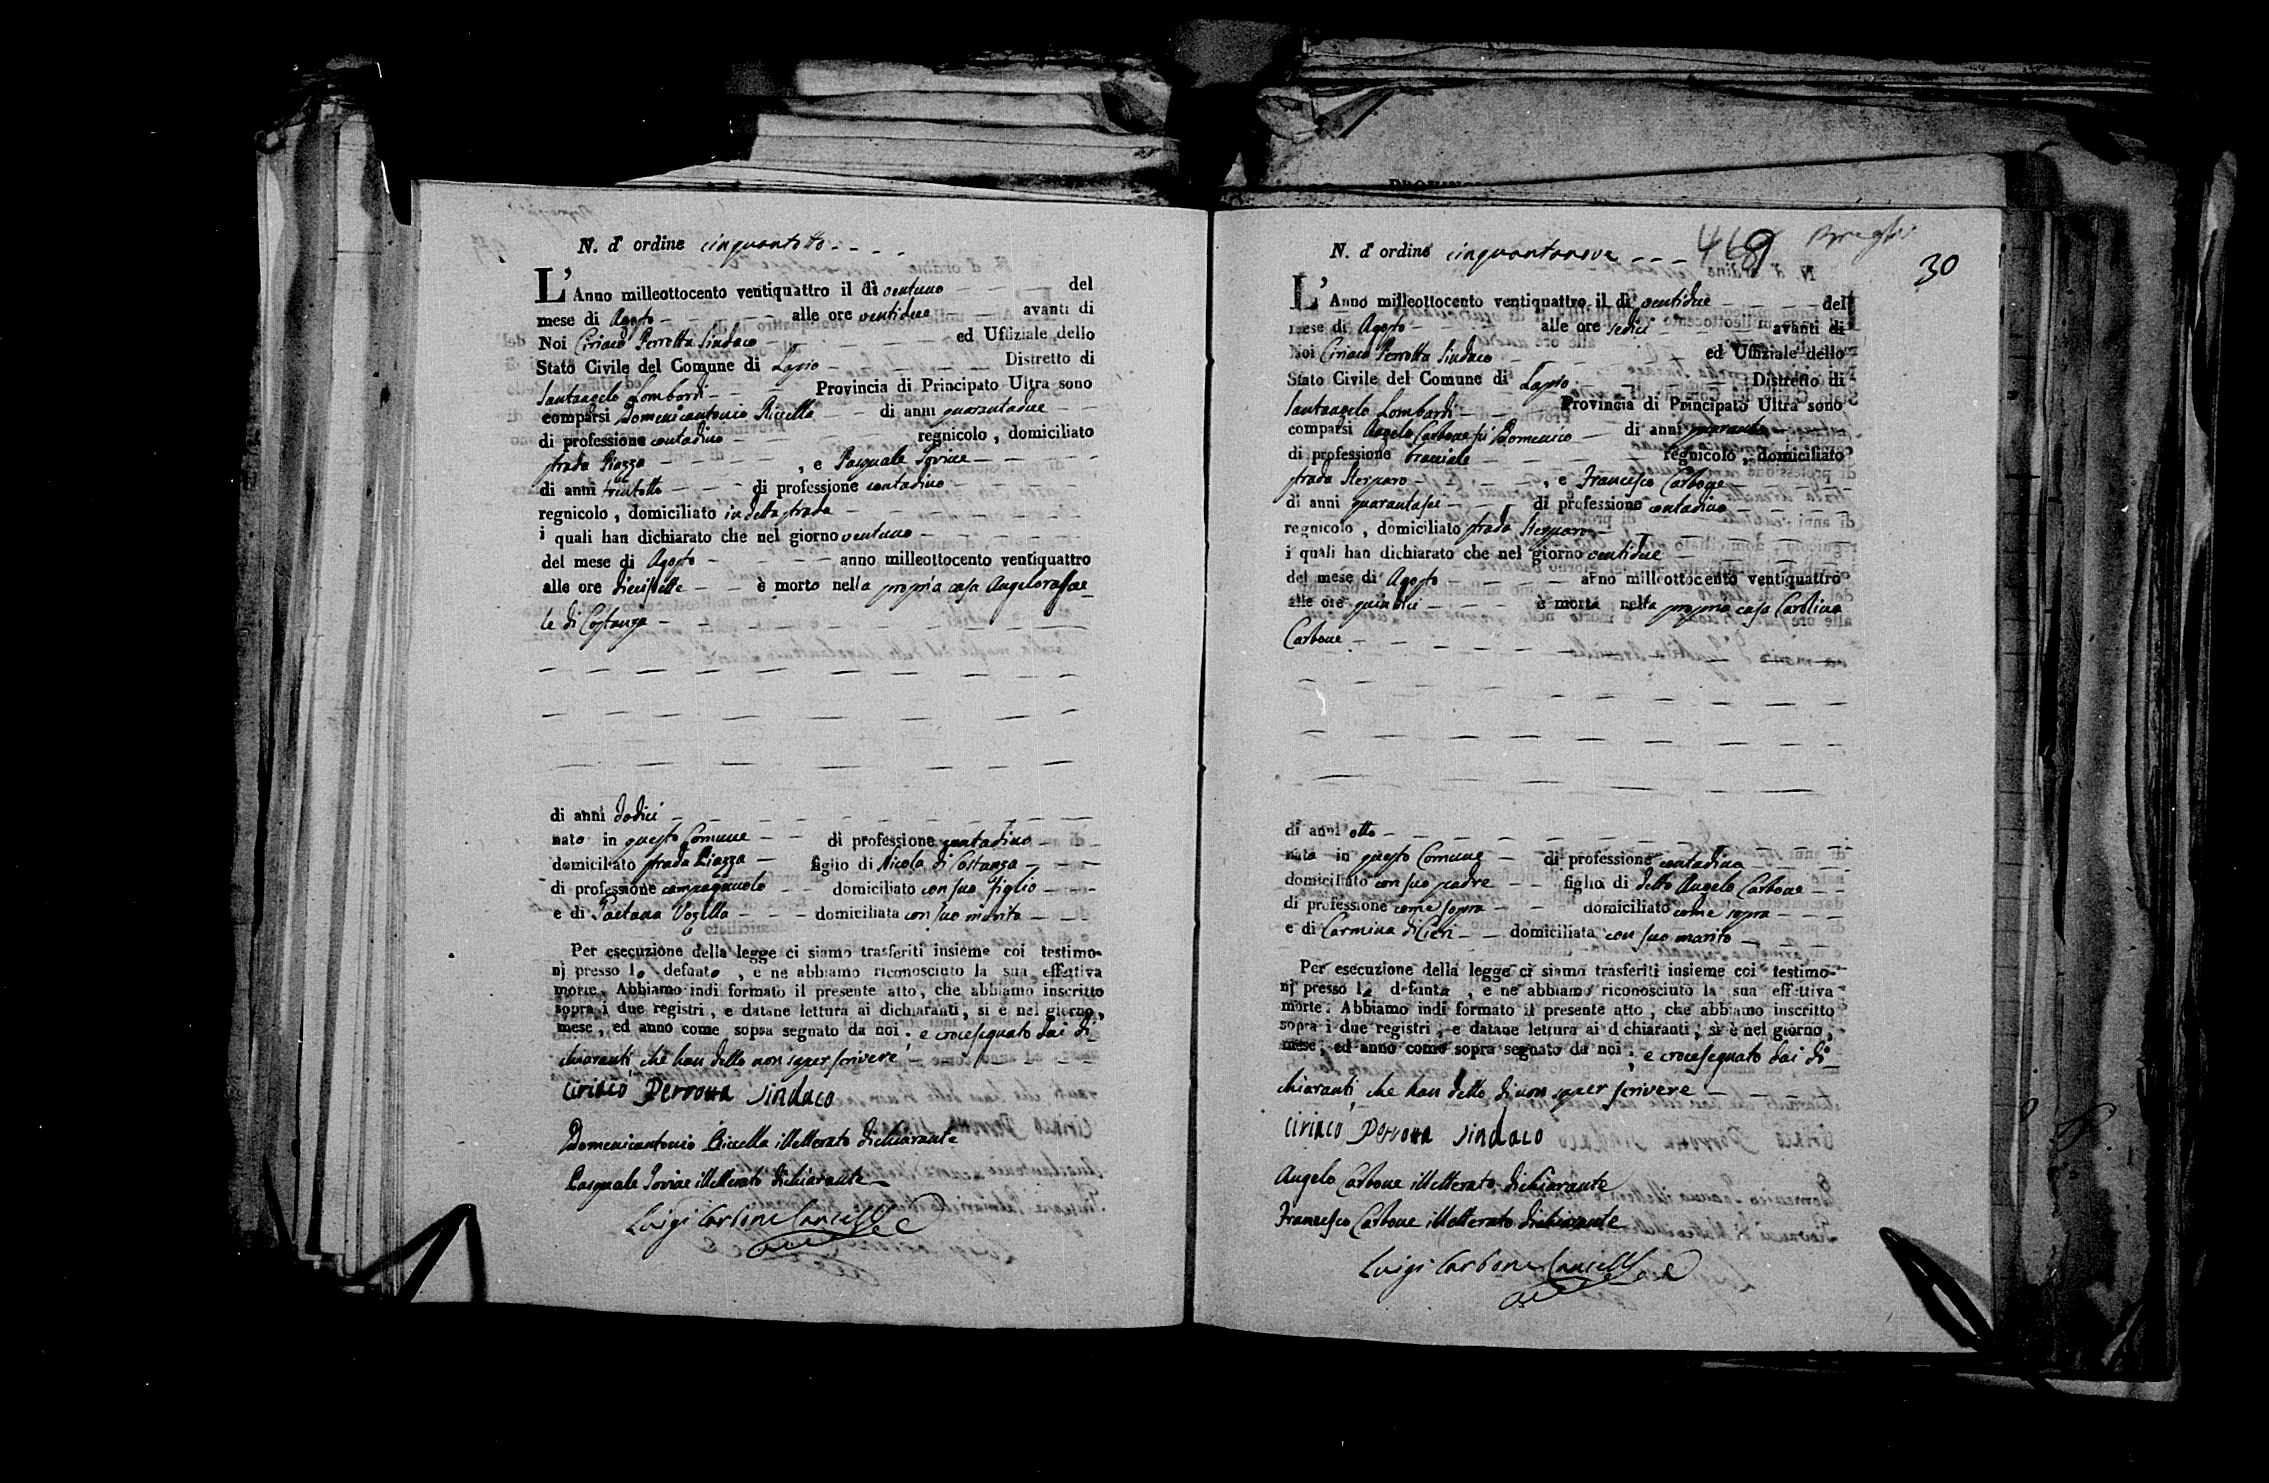 N. d' ordine cinquantotto
L'Anno milleottocento ventiquattro il dì ventuno del
mese di Agosto alle ore ventidue avanti di
Noi Ciriaco Perrotta Sindaco ed Uffiziale dello
Stato Civile del Comune di Lapio Distretto di
Santangelo Lombardi Provincia di Principato Ultra sono
comparsi Domenicantonio Riccella di anni quarantadue
di professione contadino regnicolo, domiciliato
strada Piazza, e Pasquale Iovine
di anni trentotto di professione contadino
regnicolo, domiciliato in detta strada
i quali han dichiarato che nel giorno ventuno
del mese di Agosto anno milleottocento ventiquattro
alle ore diecissette è morto nella propria casa Angeloraffae
le di Costanza
di anni dodici
nato in questo Comune di professione contadino
domiciliato strada Piazza figlio di Nicola di Costanza
di professione campagnuolo domiciliato con suo figlio
e di Gaetana Vozella domiciliata con suo marito
Per esecuzione della legge ci siamo trasferiti insieme coi testimo-
nj presso lo defunto, e ne abbiamo riconosciuto la sua effettiva
morte. Abbiamo indi formato il presente atto, che abbiamo inscritto
sopra i due registri, e datane lettura ai dichiaranti, si è nel giorno,
mese, ed anno come sopra segnato da noi, e crocesegnato dai di
chiaranti, che han detto non saper scrivere
Ciriaco Perrotta Sindaco
Domenicantonio Riccella illetterato dichiarante
Pasquale Iovine illetterato dichiarante
Luigi Carbone Cancelliere
N. d' ordine cinquantanove
30
L'Anno milleottocento ventiquattro il dì ventidue del
mese di Agosto alle ore sedici avanti di
Noi Ciriaco Perrotta Sindaco ed Uffiziale dello
Stato Civile del Comune di Lapio Distretto di
Santangelo Lombardi Provincia di Principato Ultra sono
comparsi Angelo Carbone fu Domenico di anni quaranta
di professione bracciale regnicolo, domiciliato
strada Sterparo, e Francesco Carbone
di anni quarantasei di professione contadino
regnicolo, domiciliato strada Sterparo
i quali han dichiarato che nel giorno ventidue
del mese di Agosto anno milleottocento ventiquattro
alle ore quindici è morta nella propria casa Carolina
Carbone
di anni otto
nata in questo Comune di professione contadina
domiciliato con suo padre figlia di detto Angelo Carbone
di professione come sopra domiciliato come sopra
e di Carmina di Cieri domiciliata con suo marito
Per esecuzione della legge ci siamo trasferiti insieme coi testimo-
nj presso la defunta, e ne abbiamo riconosciuto la sua effettiva
morte. Abbiamo indi formato il presente atto, che abbiamo inscritto
sopra i due registri, e datane lettura ai dichiaranti, si è nel giorno,
mese, ed anno come sopra segnato da noi, e crocesegnato dai di
chiaranti, che han detto di non saper scrivere
Ciriaco Perrotta Sindaco
Angelo Carbone illetterato dichiarante
Francesco Carbone illetterato dichiarante
Luigi Carbone Cancelliere